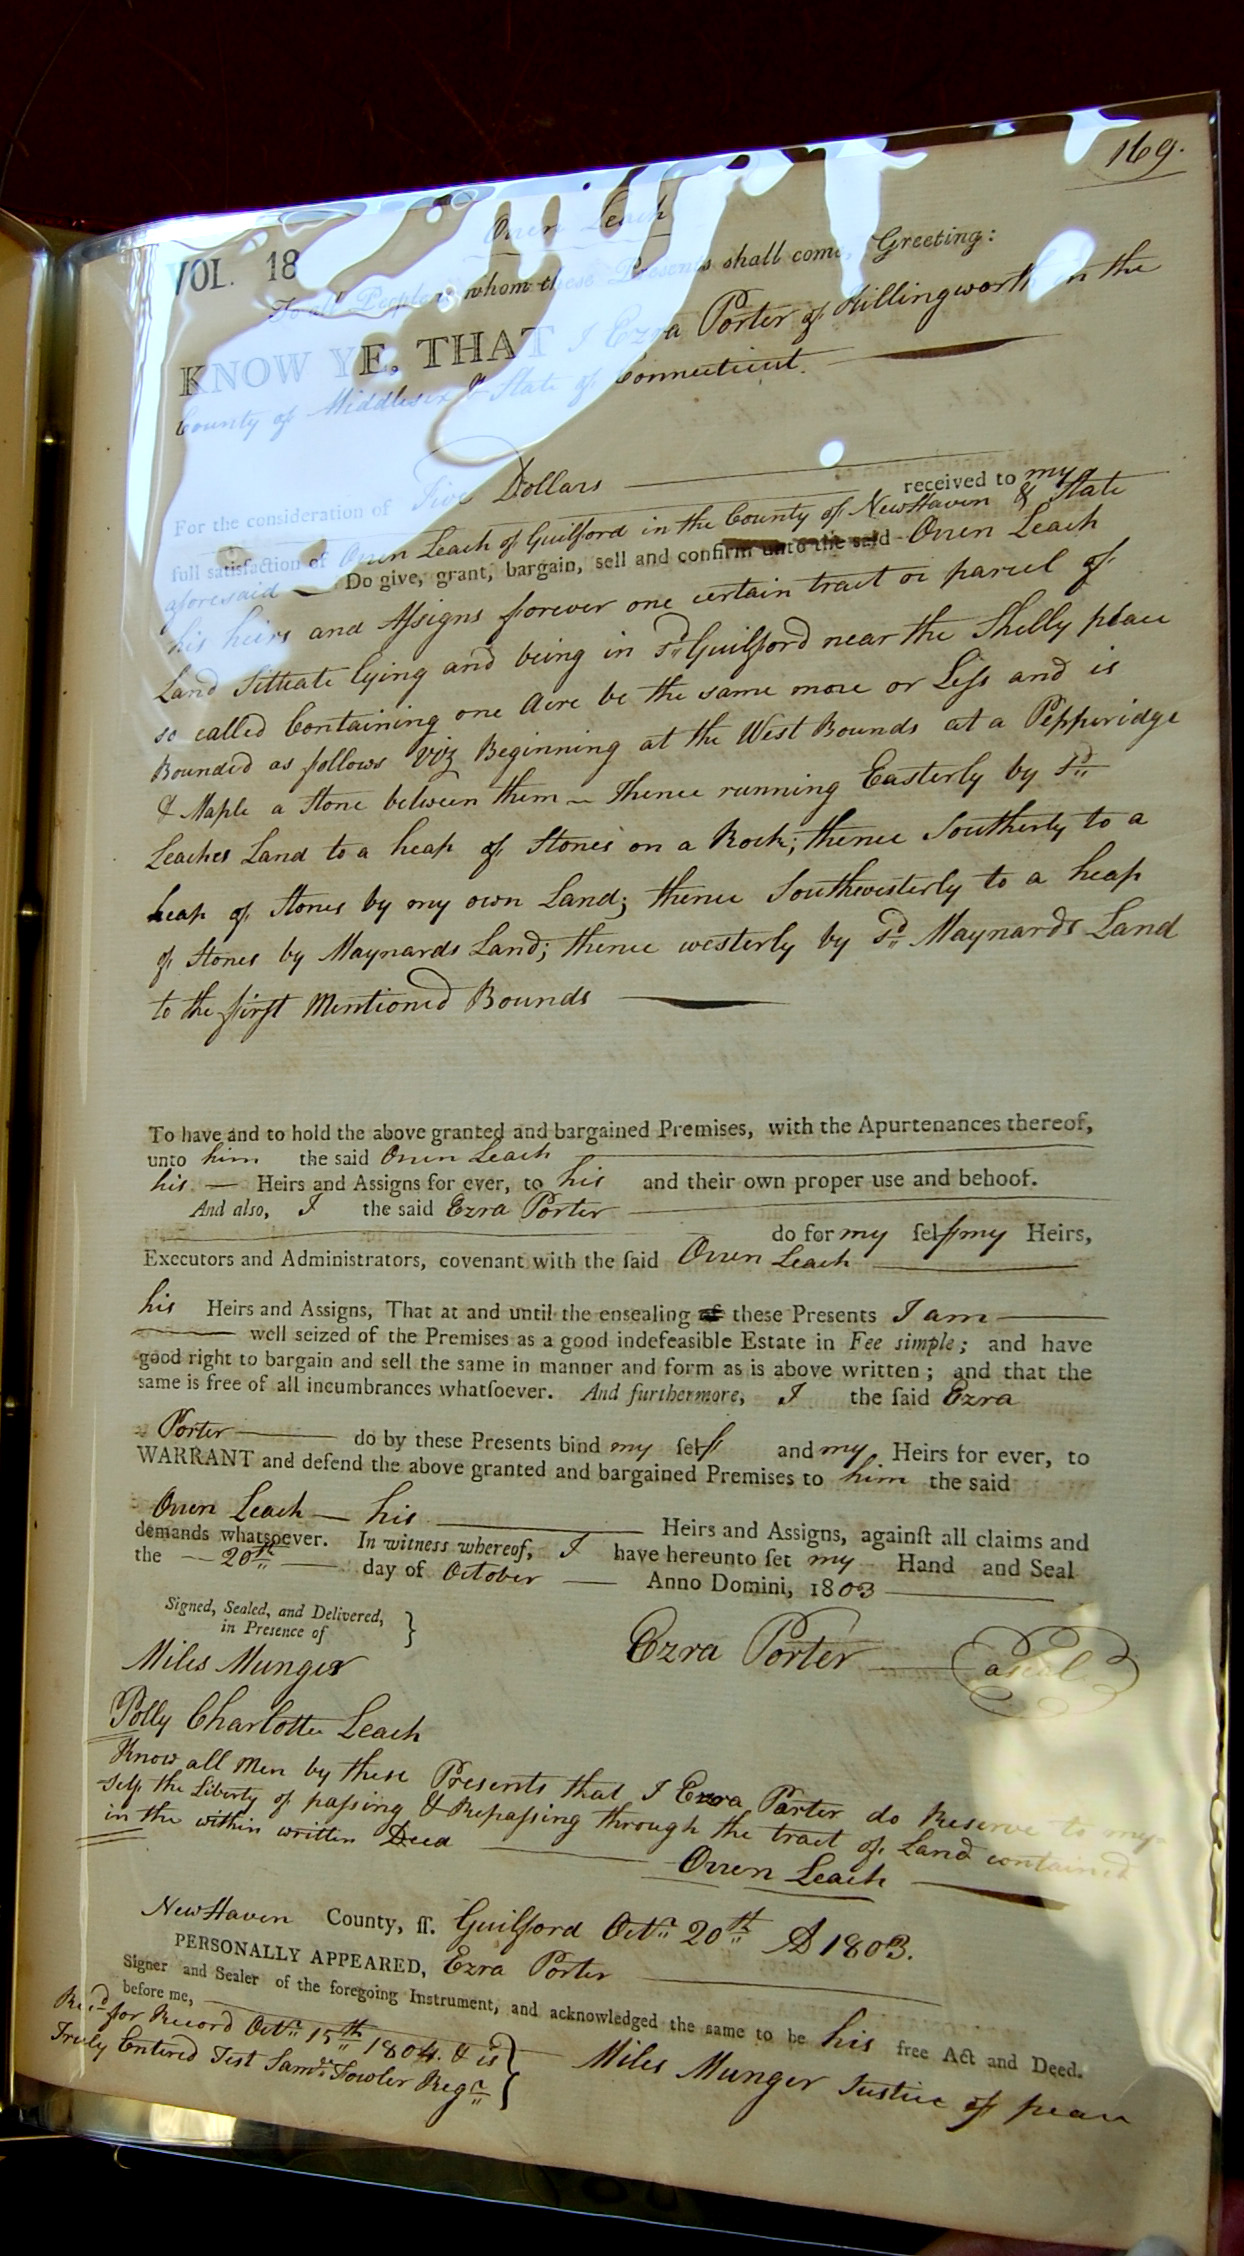 169.
Oren Leach
VOL. 18
To all People to whom these Presents shall come, Greeting:
KNOW YE, THAT I Ezra Porter of Killingworth in the
County of Middlesex & State of Connecticut.
For the consideration of Five Dollars
received to my
full satisfaction of Oren Leach of Guilford in the County of New Haven & State
aforesaid Do give, grant, bargain, sell and confirm unto the said Oren Leach
his heirs and Assigns forever one certain tract or parcel of
Land Situate lying and being in sd Guilford near the Shelly place
so called Containing one Acre be the same more or Less and is
Bounded as follows Viz Beginning at the West Bounds at a Pepperidge
& Maple a Stone between them – thence running Easterly by sd
Leaches Land to a heap of Stones on a Rock; thence Southerly to a
heap of Stones by my own Land; thence Southwesterly to a heap
of Stones by Maynards Land; thence westerly by sd Maynards Land
to the first Mentioned Bounds
To have and to hold the above granted and bargained Premises, with the Apurtenances thereof,
unto him the said Oren Leach
his Heirs and Assigns for ever, to his and their own proper use and behoof.
And also, I the said Ezra Porter
do for my ſelf my Heirs,
Executors and Administrators, covenant with the ſaid Oren Leach
his Heirs and Assigns, That at and until the ensealing of these Presents I am
well seized of the Premises as a good indefeasible Estate in Fee simple; and have
good right to bargain and sell the same in manner and form as is above written; and that the
same is free of all incumbrances whatſoever. And furthermore, I the ſaid Ezra
Porter do by these Presents bind my ſelf and my Heirs for ever, to
WARRANT and defend the above granted and bargained Premises to him the said
Oren Leach – his Heirs and Assigns, againſt all claims and
demands whatsoever. In witness whereof, I have hereunto ſet my Hand and Seal
the 20th day of October Anno Domini, 1803
Signed, Sealed, and Delivered,
in Presence of }
Miles Munger
Ezra Porter a seal
Polly Charlotte Leach
Know all Men by these Presents that I Ezra Porter do Reserve to my-
self the Liberty of passing & Repassing through the tract of Land contained
in the within written Deed
Oren Leach
New Haven County, ſſ. Guilford Octr 20th AD 1803.
PERSONALLY APPEARED, Ezra Porter
Signer and Sealer of the foregoing Instrument, and acknowledged the same to be his free Act and Deed.
before me,
Miles Munger Justice of peace
Recd for Record Octr 15th 1804. & is
Truly Entered Test Saml Fowler Regr